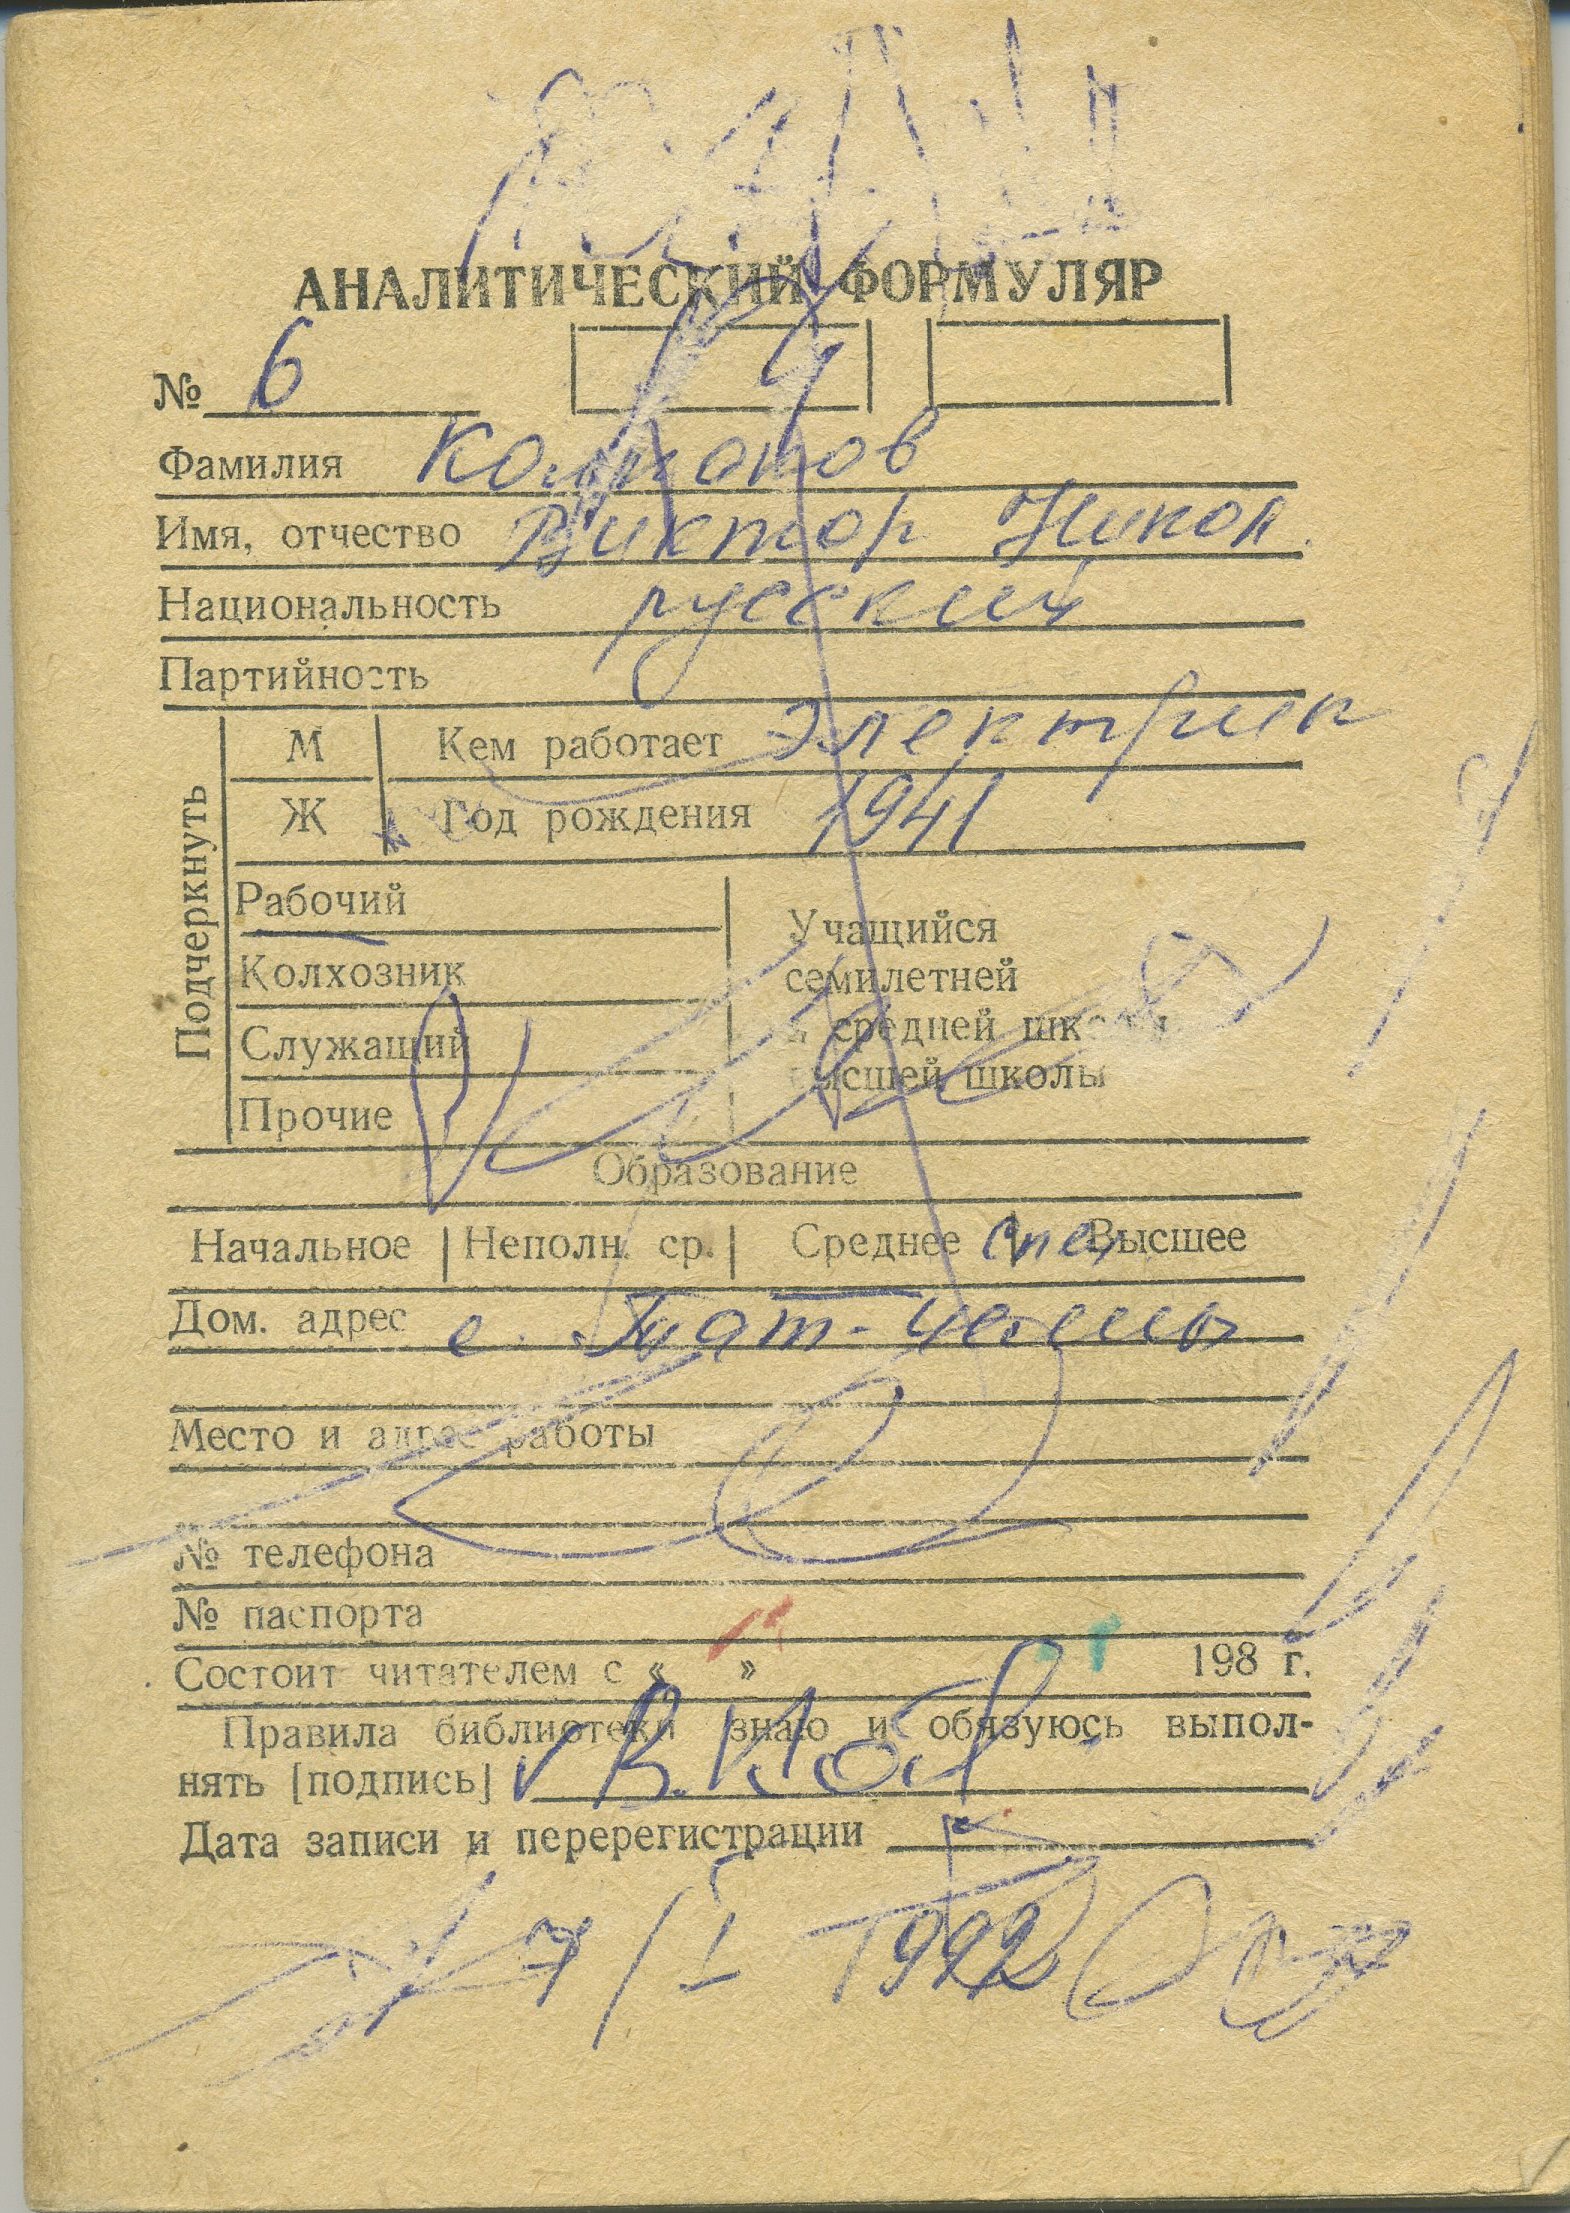 АНАЛИТИЧЕСКИЙ ФОРМУЛЯР
№ 6 4
Фамилия
Имя, отчество Виктор Никол.
Национальность русский
Партийность
Подчеркнуть
М Кем работает электрик
Ж Год рождения 1941
Рабочий
Колхозник
Служащий
Прочие
Учащийся
семилетней
и средней школы
высшей школы
Образование
Начальное Неполн. ср. Среднее спец Высшее
Дом. адрес с.
Место и адрес работы
№ телефона
№ паспорта
Состоит читателем с « » 198 г.
Правила библиотеки знаю и обязуюсь выпол-
нять [подпись]
Дата записи и перерегистрации
7/I 1992